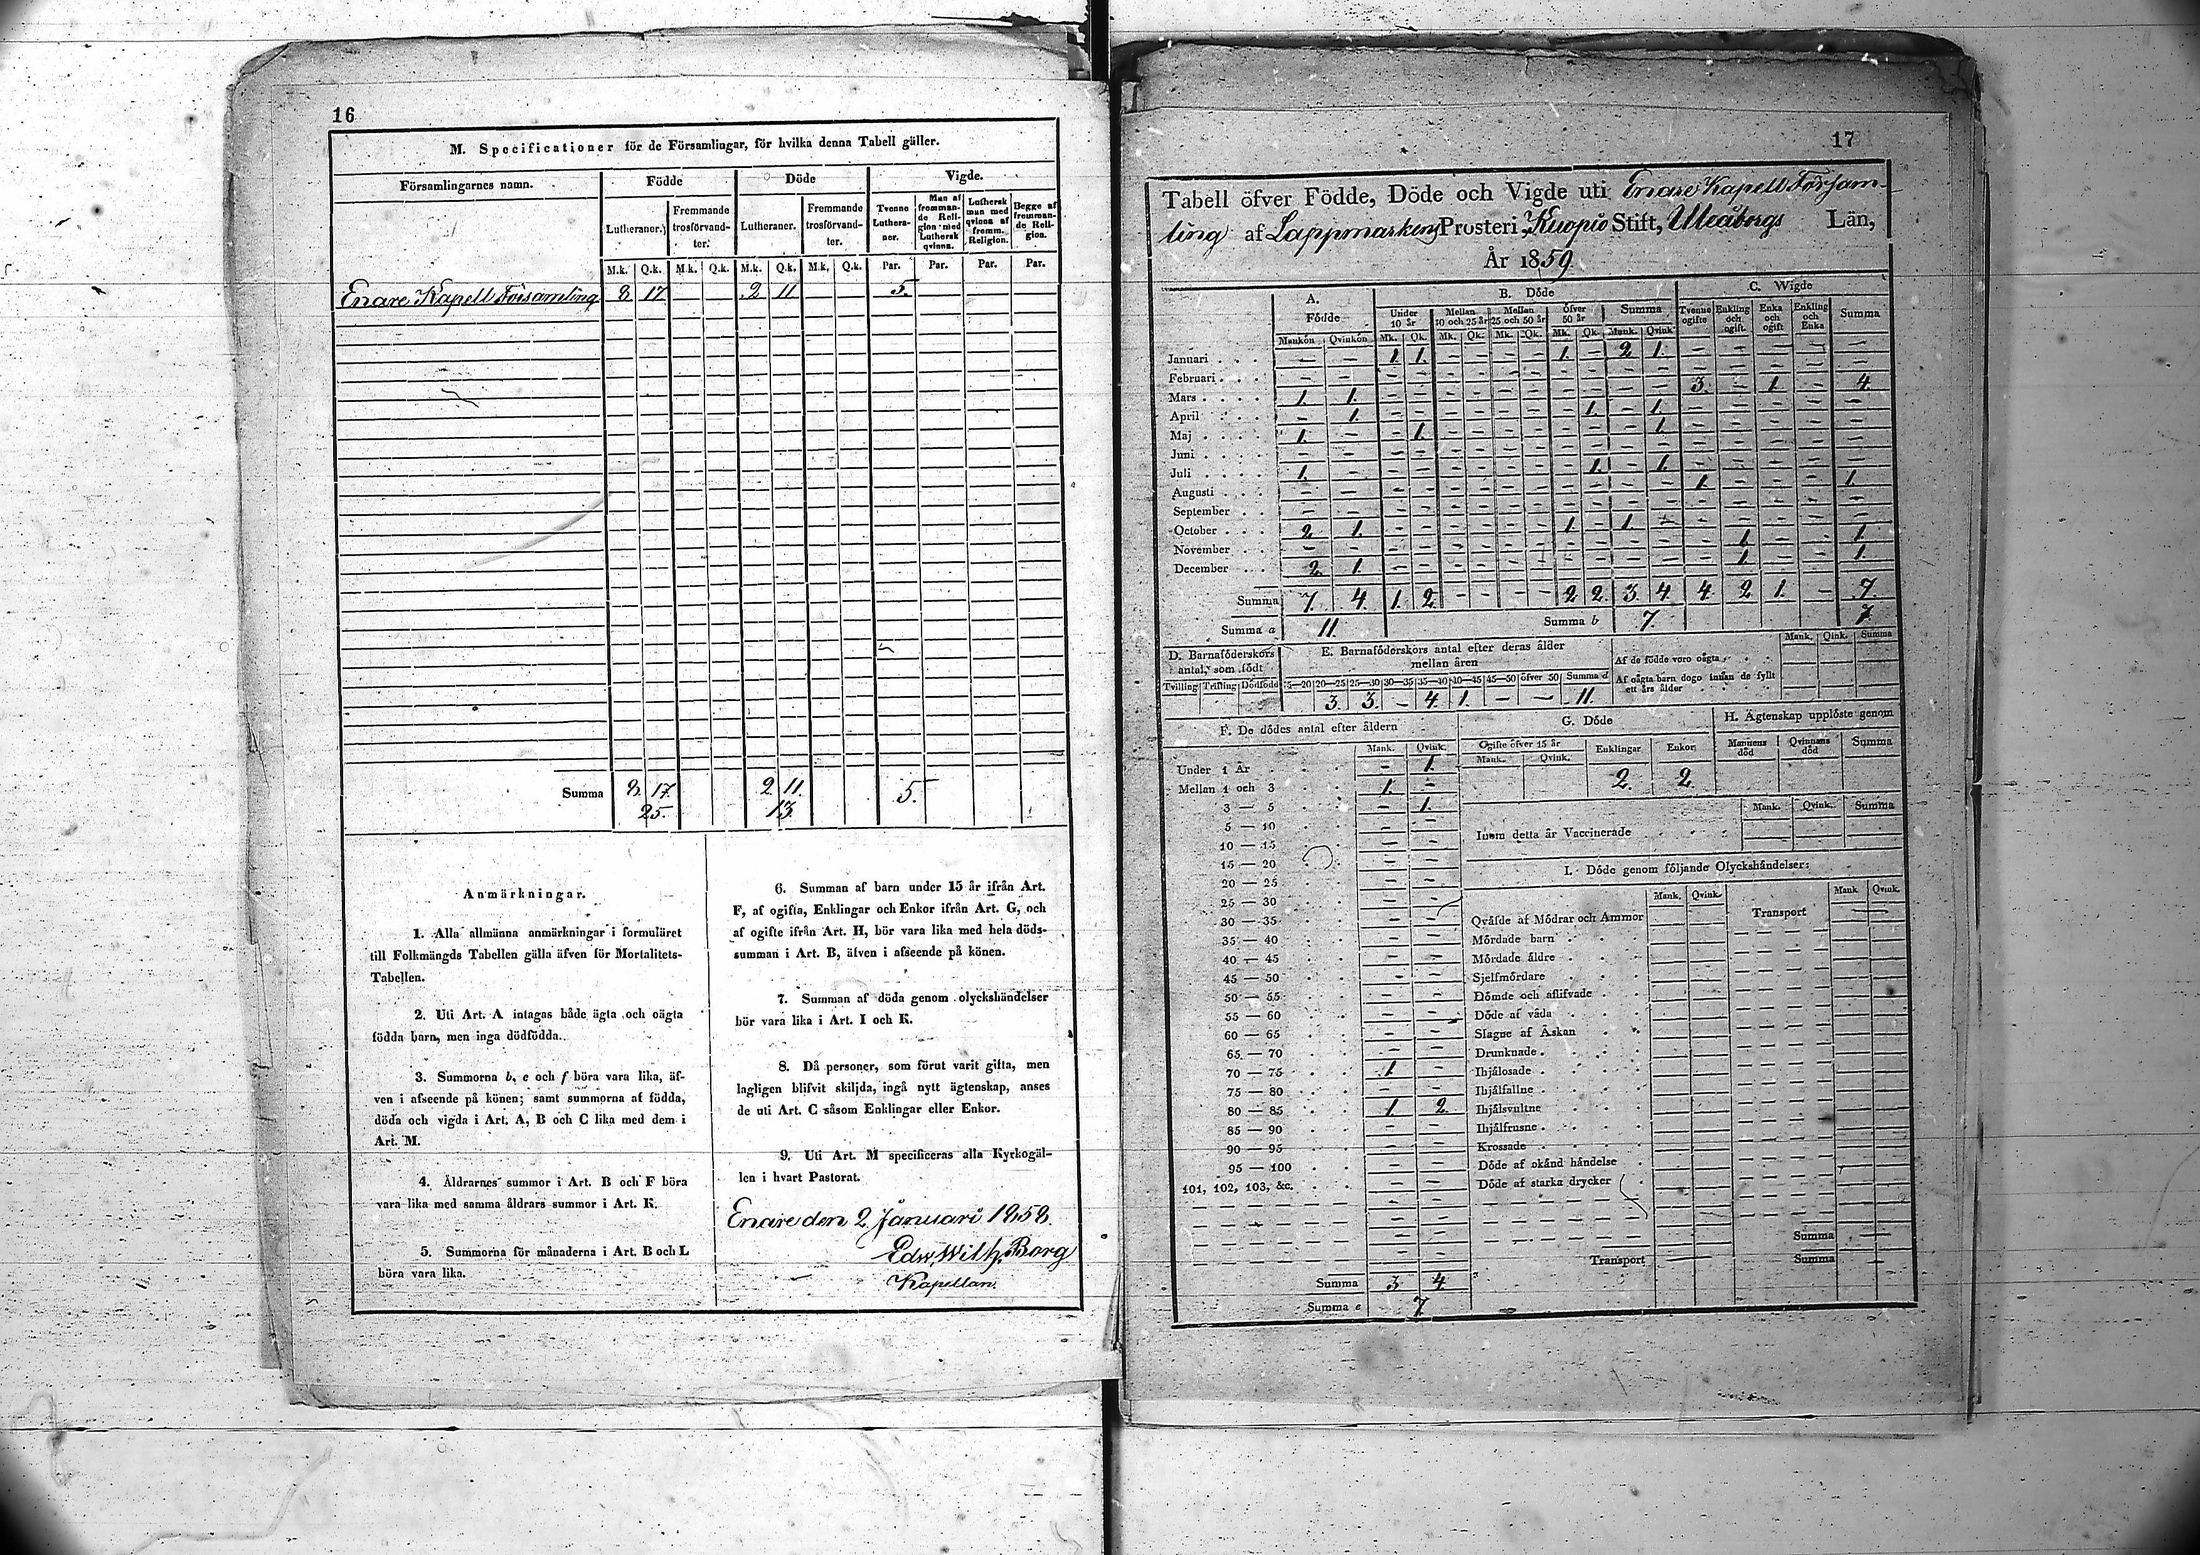 16
M. Specificationer för de Församlingar, för hvilka denna Tabell gäller.
Församlingarnes namn. Födde Döde Vigde.
Lutheraner. Fremmande trosförvandter. Lutheraner. Fremmande trosförvandter. Tvenne Lutheraner. Man af fremmande Religion med Luthersk qvinna. Luthersk man med qvinna af fremm. Religion. Begge af fremmande Religion.
M.k. Q.k. M.k. Q.k. M.k. Q.k. M.k. Q.k. Par. Par. Par. Par.
Enare Kapell Församling 8 17 2 11 5.
Summa 8. 17. 2. 11. 5.
25. 13.
Anmärkningar.
1. Alla allmänna anmärkningar i formuläret
till Folkmängds Tabellen gälla äfven för Mortalitets-
Tabellen.
2. Uti Art. A intagas både ägta och oägta
födda barn, men inga dödfödda.
3. Summorna b, e och f böra vara lika, äf-
ven i afseende på könen; samt summorna af födda,
döda och vigda i Art. A, B och C lika med dem i
Art. M.
4. Åldrarnes summor i Art. B och F böra
vara lika med samma åldrars summor i Art. K.
5. Summorna för månaderna i Art. B och L
böra vara lika.
6. Summan af barn under 15 år ifrån Art.
F, af ogifta, Enklingar och Enkor ifrån Art. G, och
af ogifte ifrån Art. H, bör vara lika med hela döds-
summan i Art. B, äfven i afseende på könen.
7. Summan af döda genom olyckshändelser
bör vara lika i Art. I och K.
8. Då personer, som förut varit gifta, men
lagligen blifvit skiljda, ingå nytt ägtenskap, anses
de uti Art. C såsom Enklingar eller Enkor.
9. Uti Art. M specificeras alla Kyrkogäl-
len i hvart Pastorat.
Enare den 2 Januari 1858.
Edw. Wilh. Borg
Kapellan.
17
Tabell öfver Födde, Döde och Vigde uti Enare Kapell Försam-
ling af Lappmarkens Prosteri, Kuopio Stift, Uleåborgs Län,
År 1859.
A. Födde B. Döde C. Wigde
Under 10 år Mellan 10 och 25 år Mellan 25 och 50 år Öfver 50 år Summa Tvenne ogifte Enkling och ogift Enka och ogift Enkling och Enka Summa
Mankön Qvinkön Mk. Qk. Mk. Qk. Mk. Qk. Mk. Qk. Mank. Qvink.
Januari – – 1. 1. – – – – 1. – 2 1. – – – – –
Februari – – – – – – – – – – – – – – – – –
Mars 1. 1. – – – – – – – – – – 3. – 1. – 4.
April – 1. – – – – – – – 1. – 1. – – – – –
Maj 1. – – 1. – – – – – – – 1. – – – – –
Juni – – – – – – – – – – – – – – – – –
Juli 1. – – – – – – – – 1. – 1. – – – – –
Augusti – – – – – – – – – – – – 1. – – – 1.
September – – – – – – – – – – – – – – – – –
October 2 1. – – – – – – 1. – 1. – – – – – –
November – – – – – – – – – – – – – 1. – – 1.
December 2. 1. – – – – – – – – – – – 1. – – 1.
Summa 7. 4. 1. 2. – – – – 2 2. 3. 4. 4. 2. 1. – 7.
Summa a 11. Summa b 7. 7.
D. Barnaföderskors antal, som födt
Tvilling Trilling Dödfödd
E. Barnaföderskors antal efter deras ålder mellan åren
15—20 20—25 25—30 30—35 35—40 40—45 45—50 öfver 50 Summa d
3. 3. – 4. 1. – – 11.
Mank. Qink. Summa
Af de födde voro oägta
Af oägta barn dogo innan de fyllt
ett års ålder
F. De dödes antal efter åldern
Mank. Qvink.
Under 1 År – 1.
Mellan 1 och 3 1. –
3 — 5 – 1.
5 — 10 – –
10 — 15 – –
15 — 20 – –
20 — 25 – –
25 — 30 – –
30 — 35 – –
35 — 40 – –
40 — 45 – –
45 — 50 – –
50 — 55 – –
55 — 60 – –
60 — 65 – –
65 — 70 – –
70 — 75 1. –
75 — 80 – –
80 — 85 1. 2.
85 — 90 – –
90 — 95 – –
95 — 100 – –
101, 102, 103, &c. – –
Summa 3 4.
Summa e 7.
G. Döde
Ogifte öfver 15 år Enklingar Enkor
Mank. Qvink.
2. 2.
H. Ägtenskap upplöste genom
Mannens död Qvinnans död Summa
Mank. Qvink. Summa
Inom detta år Vaccinerade
I. Döde genom följande Olyckshändelser:
Mank. Qvink. Mank. Qvink.
Qväfde af Mödrar och Ammor Transport
Mördade barn
Mördade äldre
Sjelfmördare
Dömde och aflifvade
Döde af våda
Slagne af Åskan
Drunknade
Ihjälosade
Ihjälfallne
Ihjälsvultne
Ihjälfrusne
Krossade
Döde af okänd händelse
Döde af starka drycker
Summa
Transport Summa